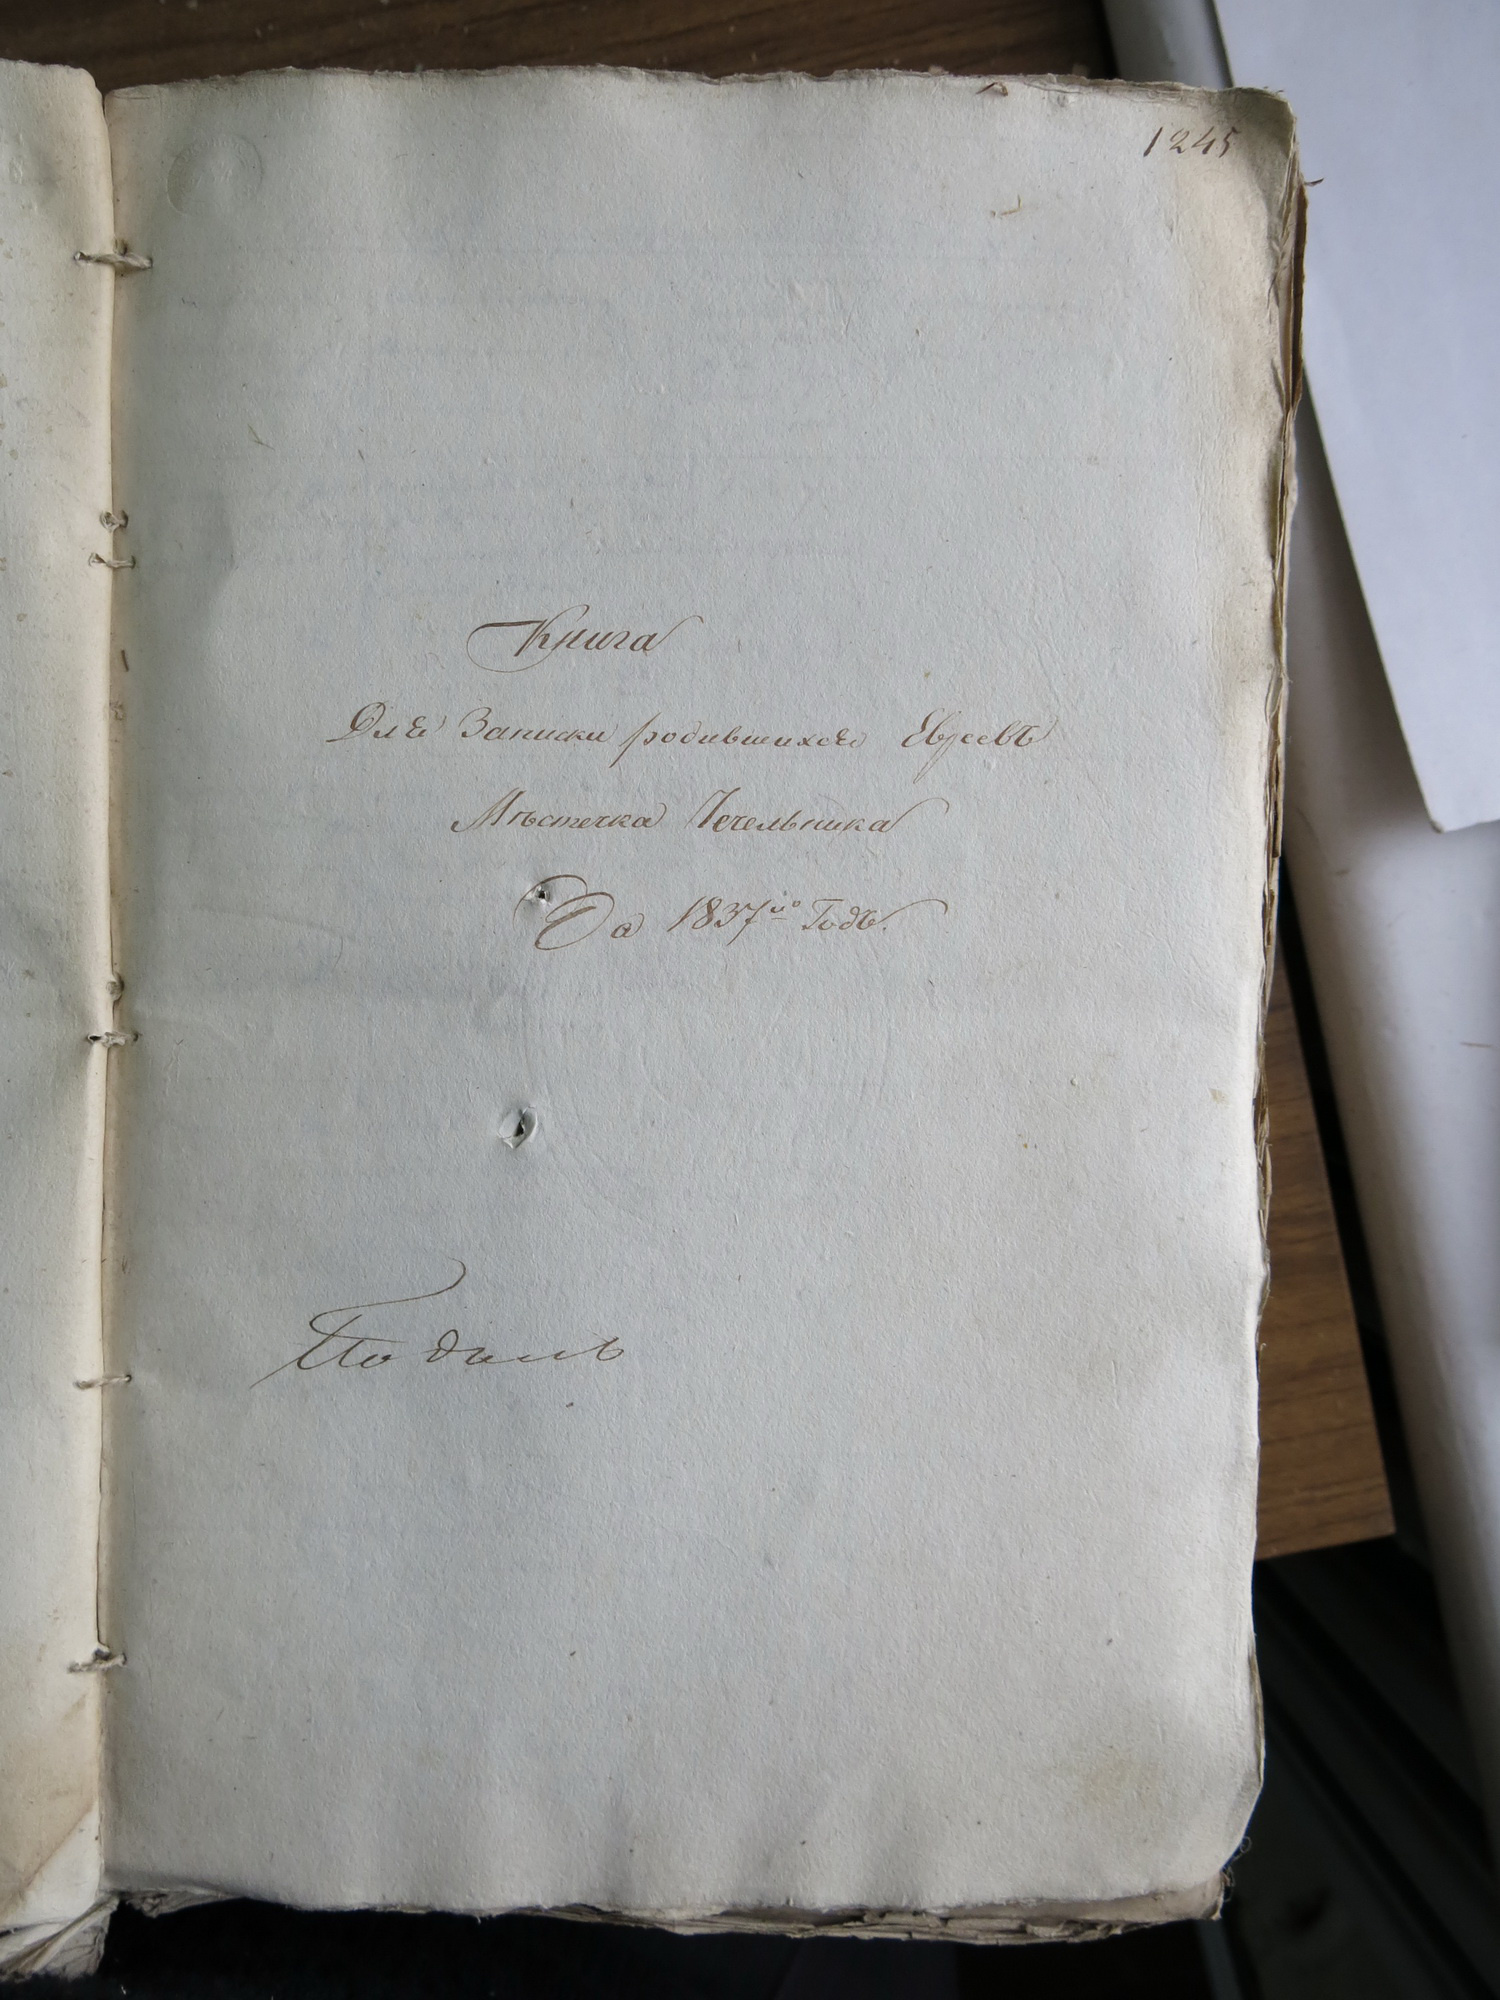 1245
Книга
Для Записки родившихся Евреевъ
Мѣстечка Чечельника
За 1837йо Годъ.